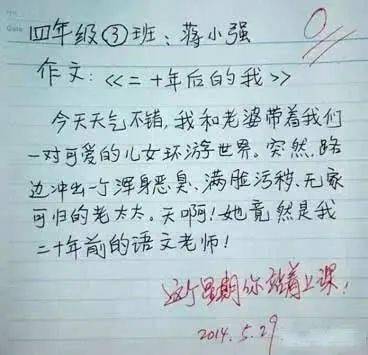 四年级③班：蒋小强
作文：<<二十年后的我>>
今天天气不错，我和老婆带着我们
一对可爱的儿女环游世界。突然，路
边冲出一个浑身恶臭、满脸污秽、无家
可归的老太太。天啊！她竟然是我
二十年前的语文老师！
0
这个星期你站着上课！
2014.5.29